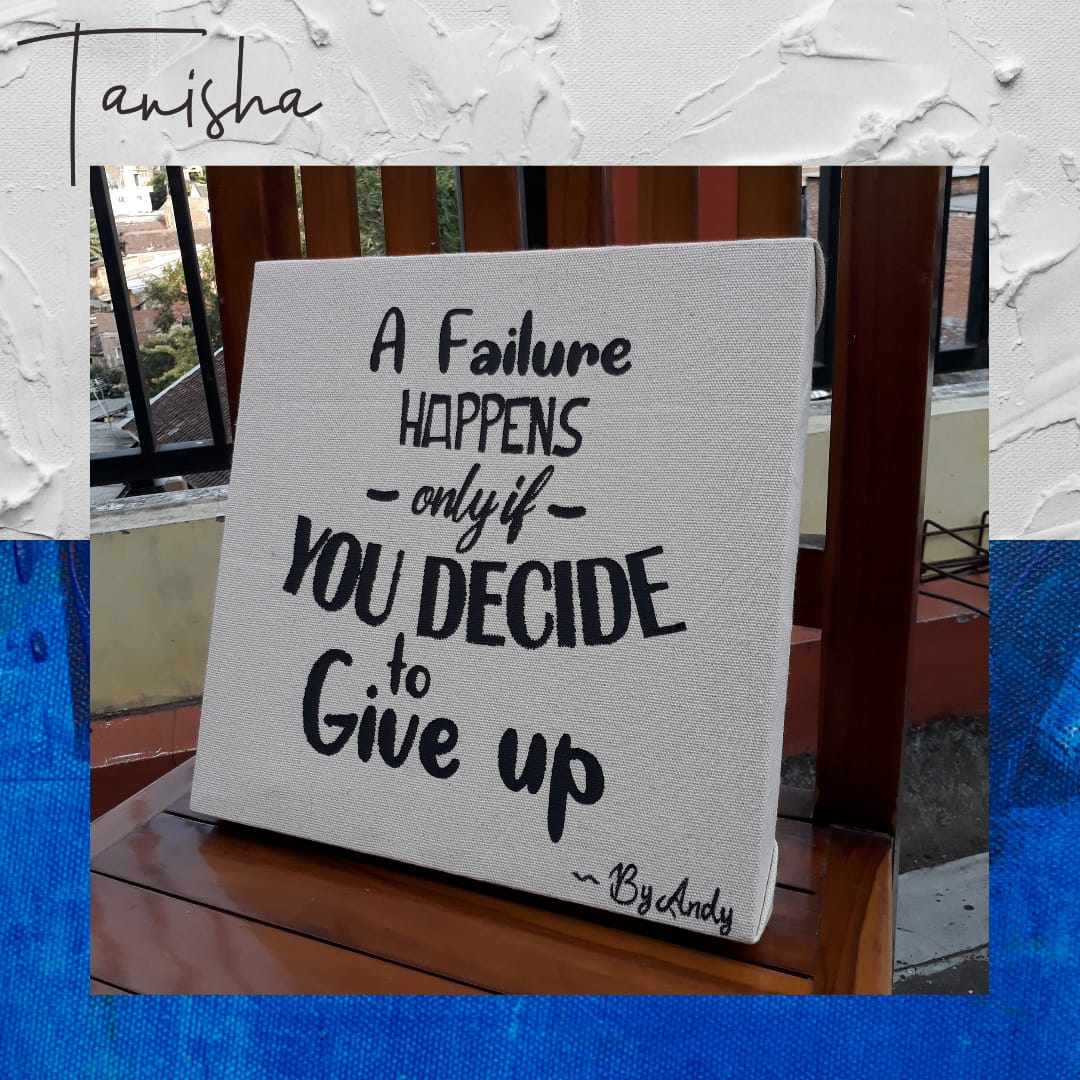 Tanisha
A Failure
HAPPENS
- only if -
YOU DECIDE
to
Give up
~ By Andy